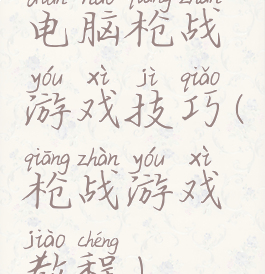 电脑枪战
yóu xì jì qiǎo
游戏技巧(
qiāng zhàn yóu xì
枪战游戏
jiào chéng
教程)